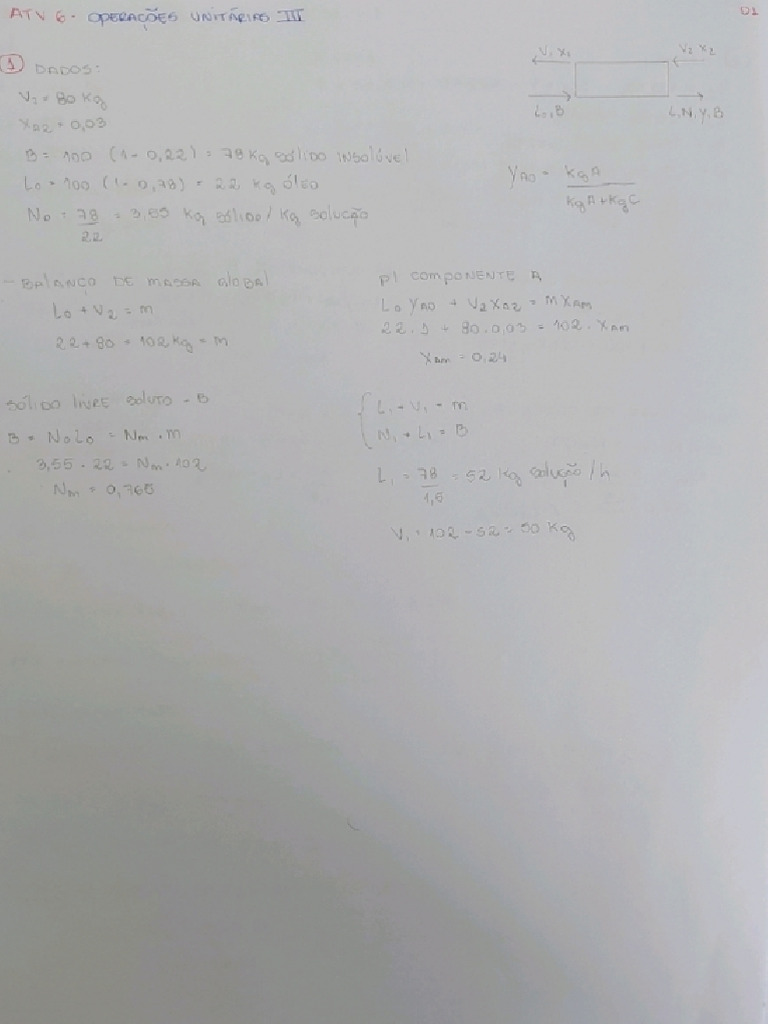 ATV 6 - OPERAÇÕES UNITÁRIAS III
01
1 DADOS:
V2 = 80 Kg
XA2 = 0,03
B = 100 (1 - 0,22) = 78 Kg SÓLIDO INSOLÚVEL
L0 = 100 (1 - 0,78) = 22 kg ÓLEO
N0 = 78/22 = 3,55 Kg SÓLIDO / Kg SOLUÇÃO
V1 X1
V2 X2
L0, B
L, N, Y, B
YA0 = KgA / KgA + KgC
- BALANÇO DE MASSA GLOBAL
L0 + V2 = m
22 + 80 = 102 Kg = m
p/ COMPONENTE A
L0 YA0 + V2 XA2 = M XAm
22 . 1 + 80 . 0,03 = 102 . XAm
XAm = 0,24
SÓLIDO LIVRE SOLUTO - B
B = N0 L0 = Nm . M
3,55 . 22 = Nm . 102
Nm = 0,765
L1 + V1 = m
N1 + L1 = B
L1 = 78/1,5 = 52 Kg SOLUÇÃO / h
V1 = 102 - 52 = 50 Kg